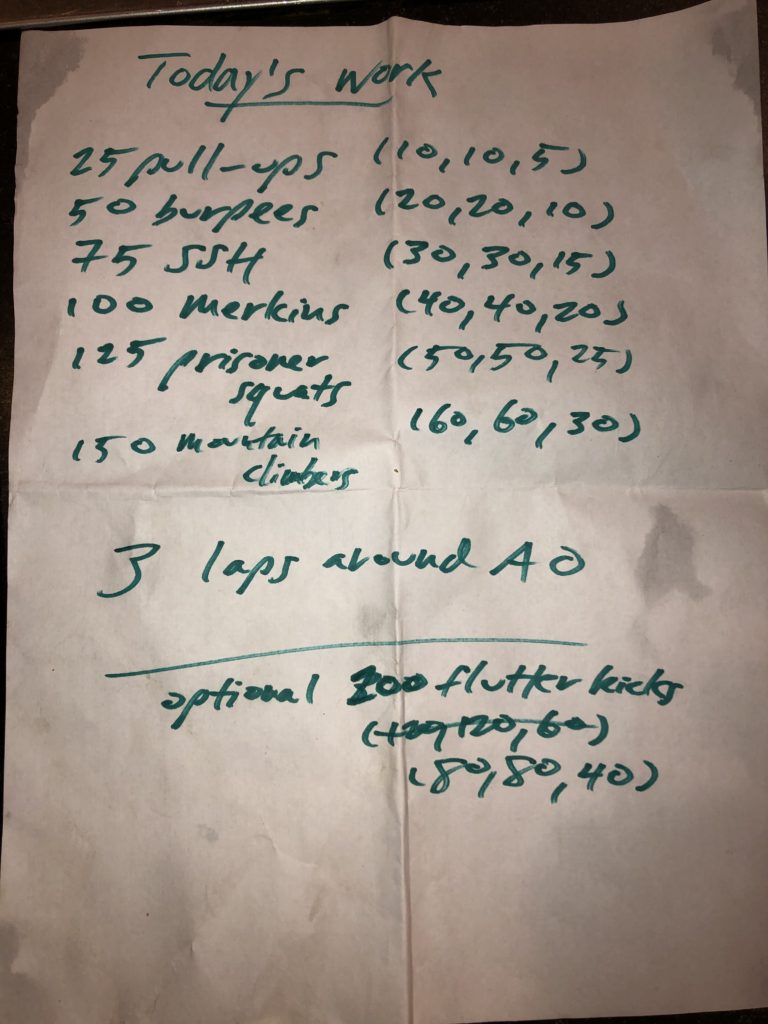 Today's work
25 pull-ups (10, 10, 5)
50 burpees (20, 20, 10)
75 SSH (30, 30, 15)
100 merkins (40, 40, 20)
125 prisoner (50, 50, 25)
squats
150 mountain (60, 60, 30)
climbers
3 laps around AO
optional 200 flutter kicks
(120, 120, 60)
(80, 80, 40)